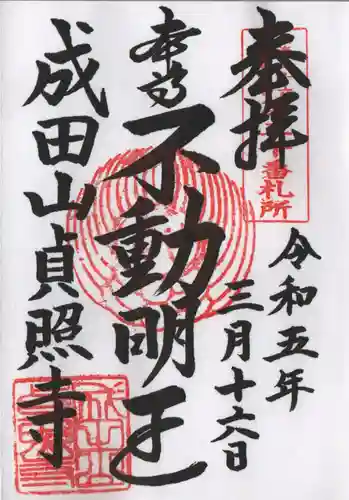 奉拝
番札所
令和五年
三月十六日
本尊
不動明王
成田山貞照寺